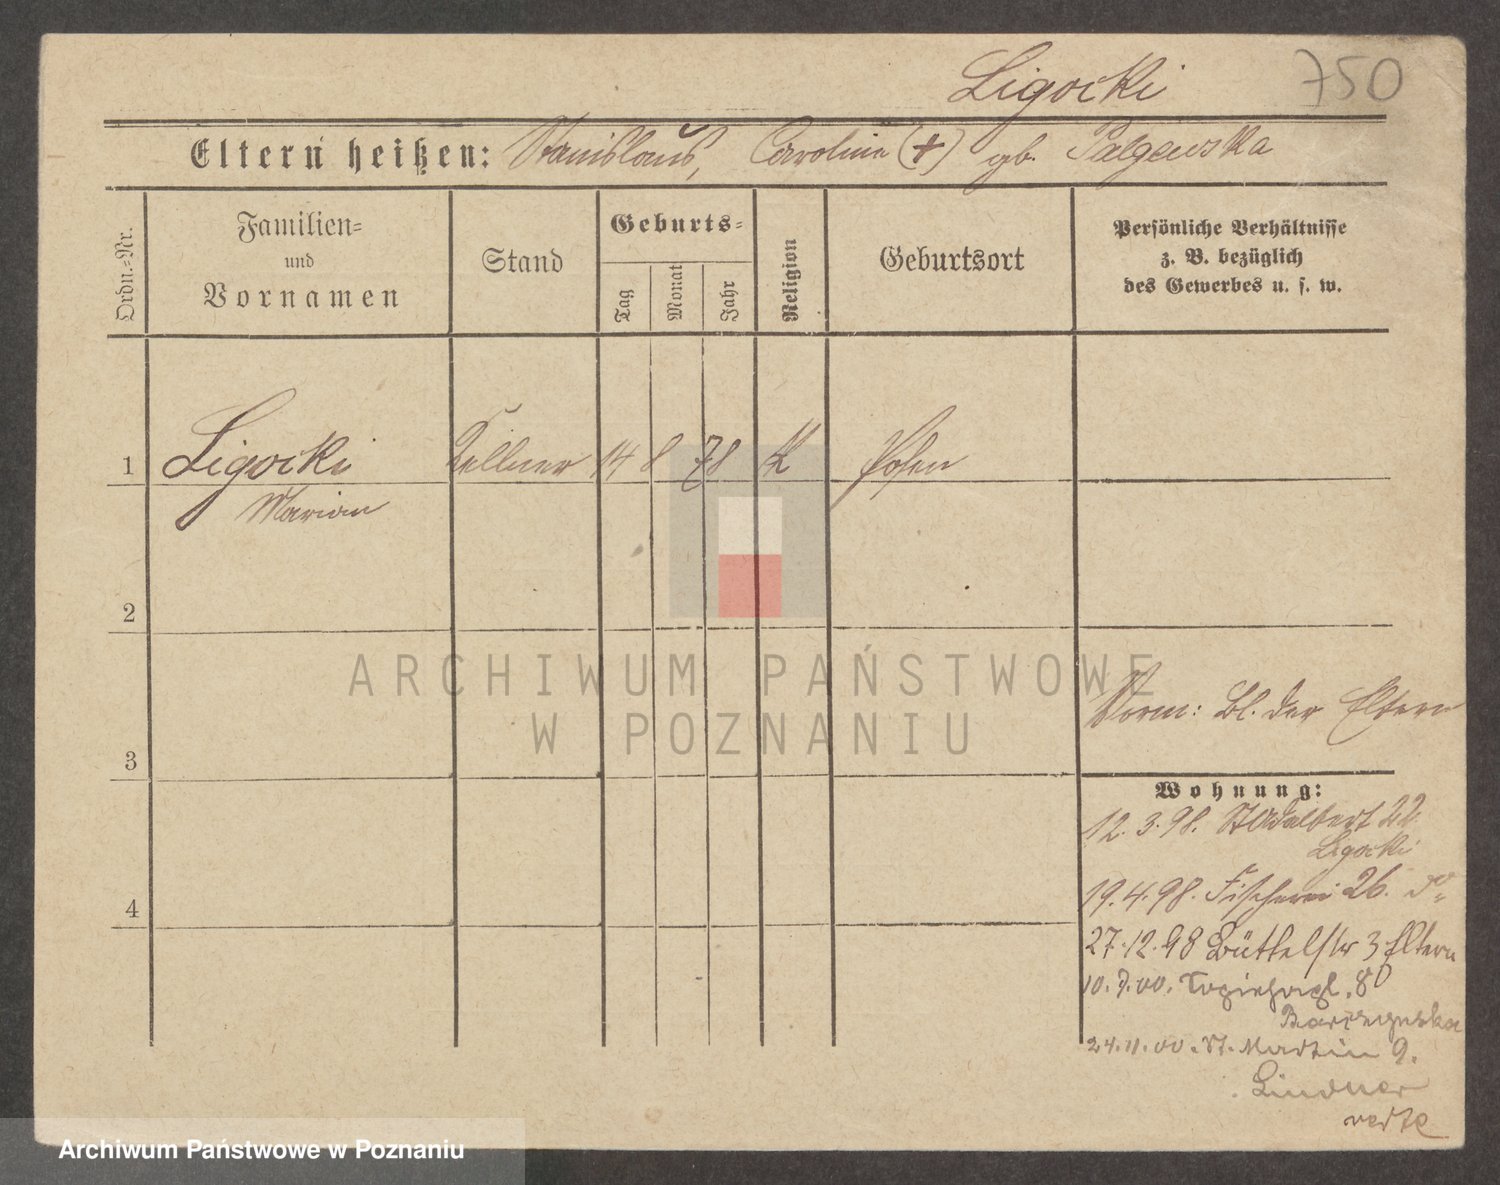 Ligocki 750
Eltern heißen: Stanislaus, Caroline (+) gb. Palgewska
Ordn.=Nr.
Familien=
und
Vornamen
Stand
Geburts=
Tag
Monat
Jahr
Religion
Geburtsort
Persönliche Verhältnisse
z. B. bezüglich
des Gewerbes u. s. w.
1 Ligocki Kellner 14 8 78 K Posen
Marian
2
3
Vorm: Bl. der Eltern
Wohnung:
12.3.98. St Adalbert 22
Ligocki
19.4.98. Fischerei 26. do
4
27.12.98 Büttelstr 3 Eltern
10.7.00. 8
24.11.00. St. Martin 9.
Lindner
verte
ARCHIWUM PAŃSTWOWE
W POZNANIU
Archiwum Państwowe w Poznaniu